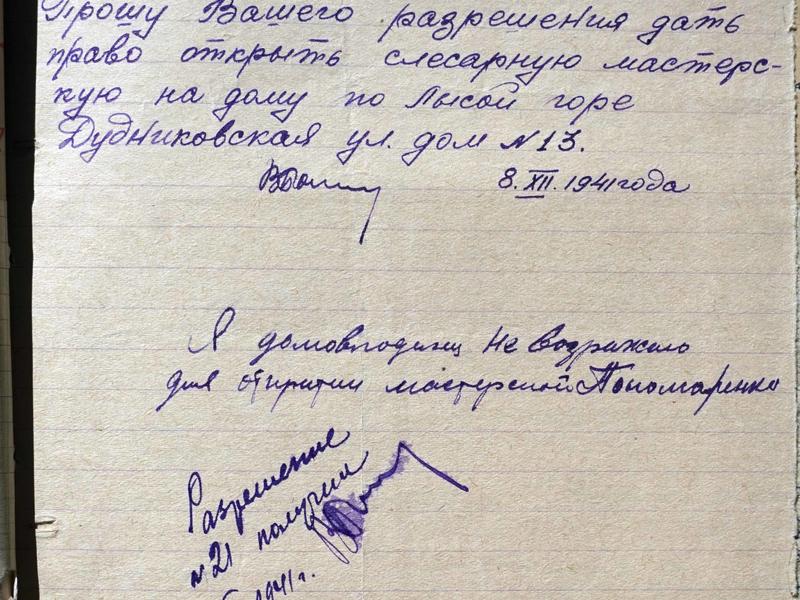 Прошу Вашего разрешения дать
право открыть слесарную мастерс-
кую на дому по Лысой горе
Дудниковская ул. дом N 13.
8. XII. 1941 года
Я домовлоделец не водражаю
для открытии мастерской Пономаренко
Разрешение
N 21 получил
1941 г.